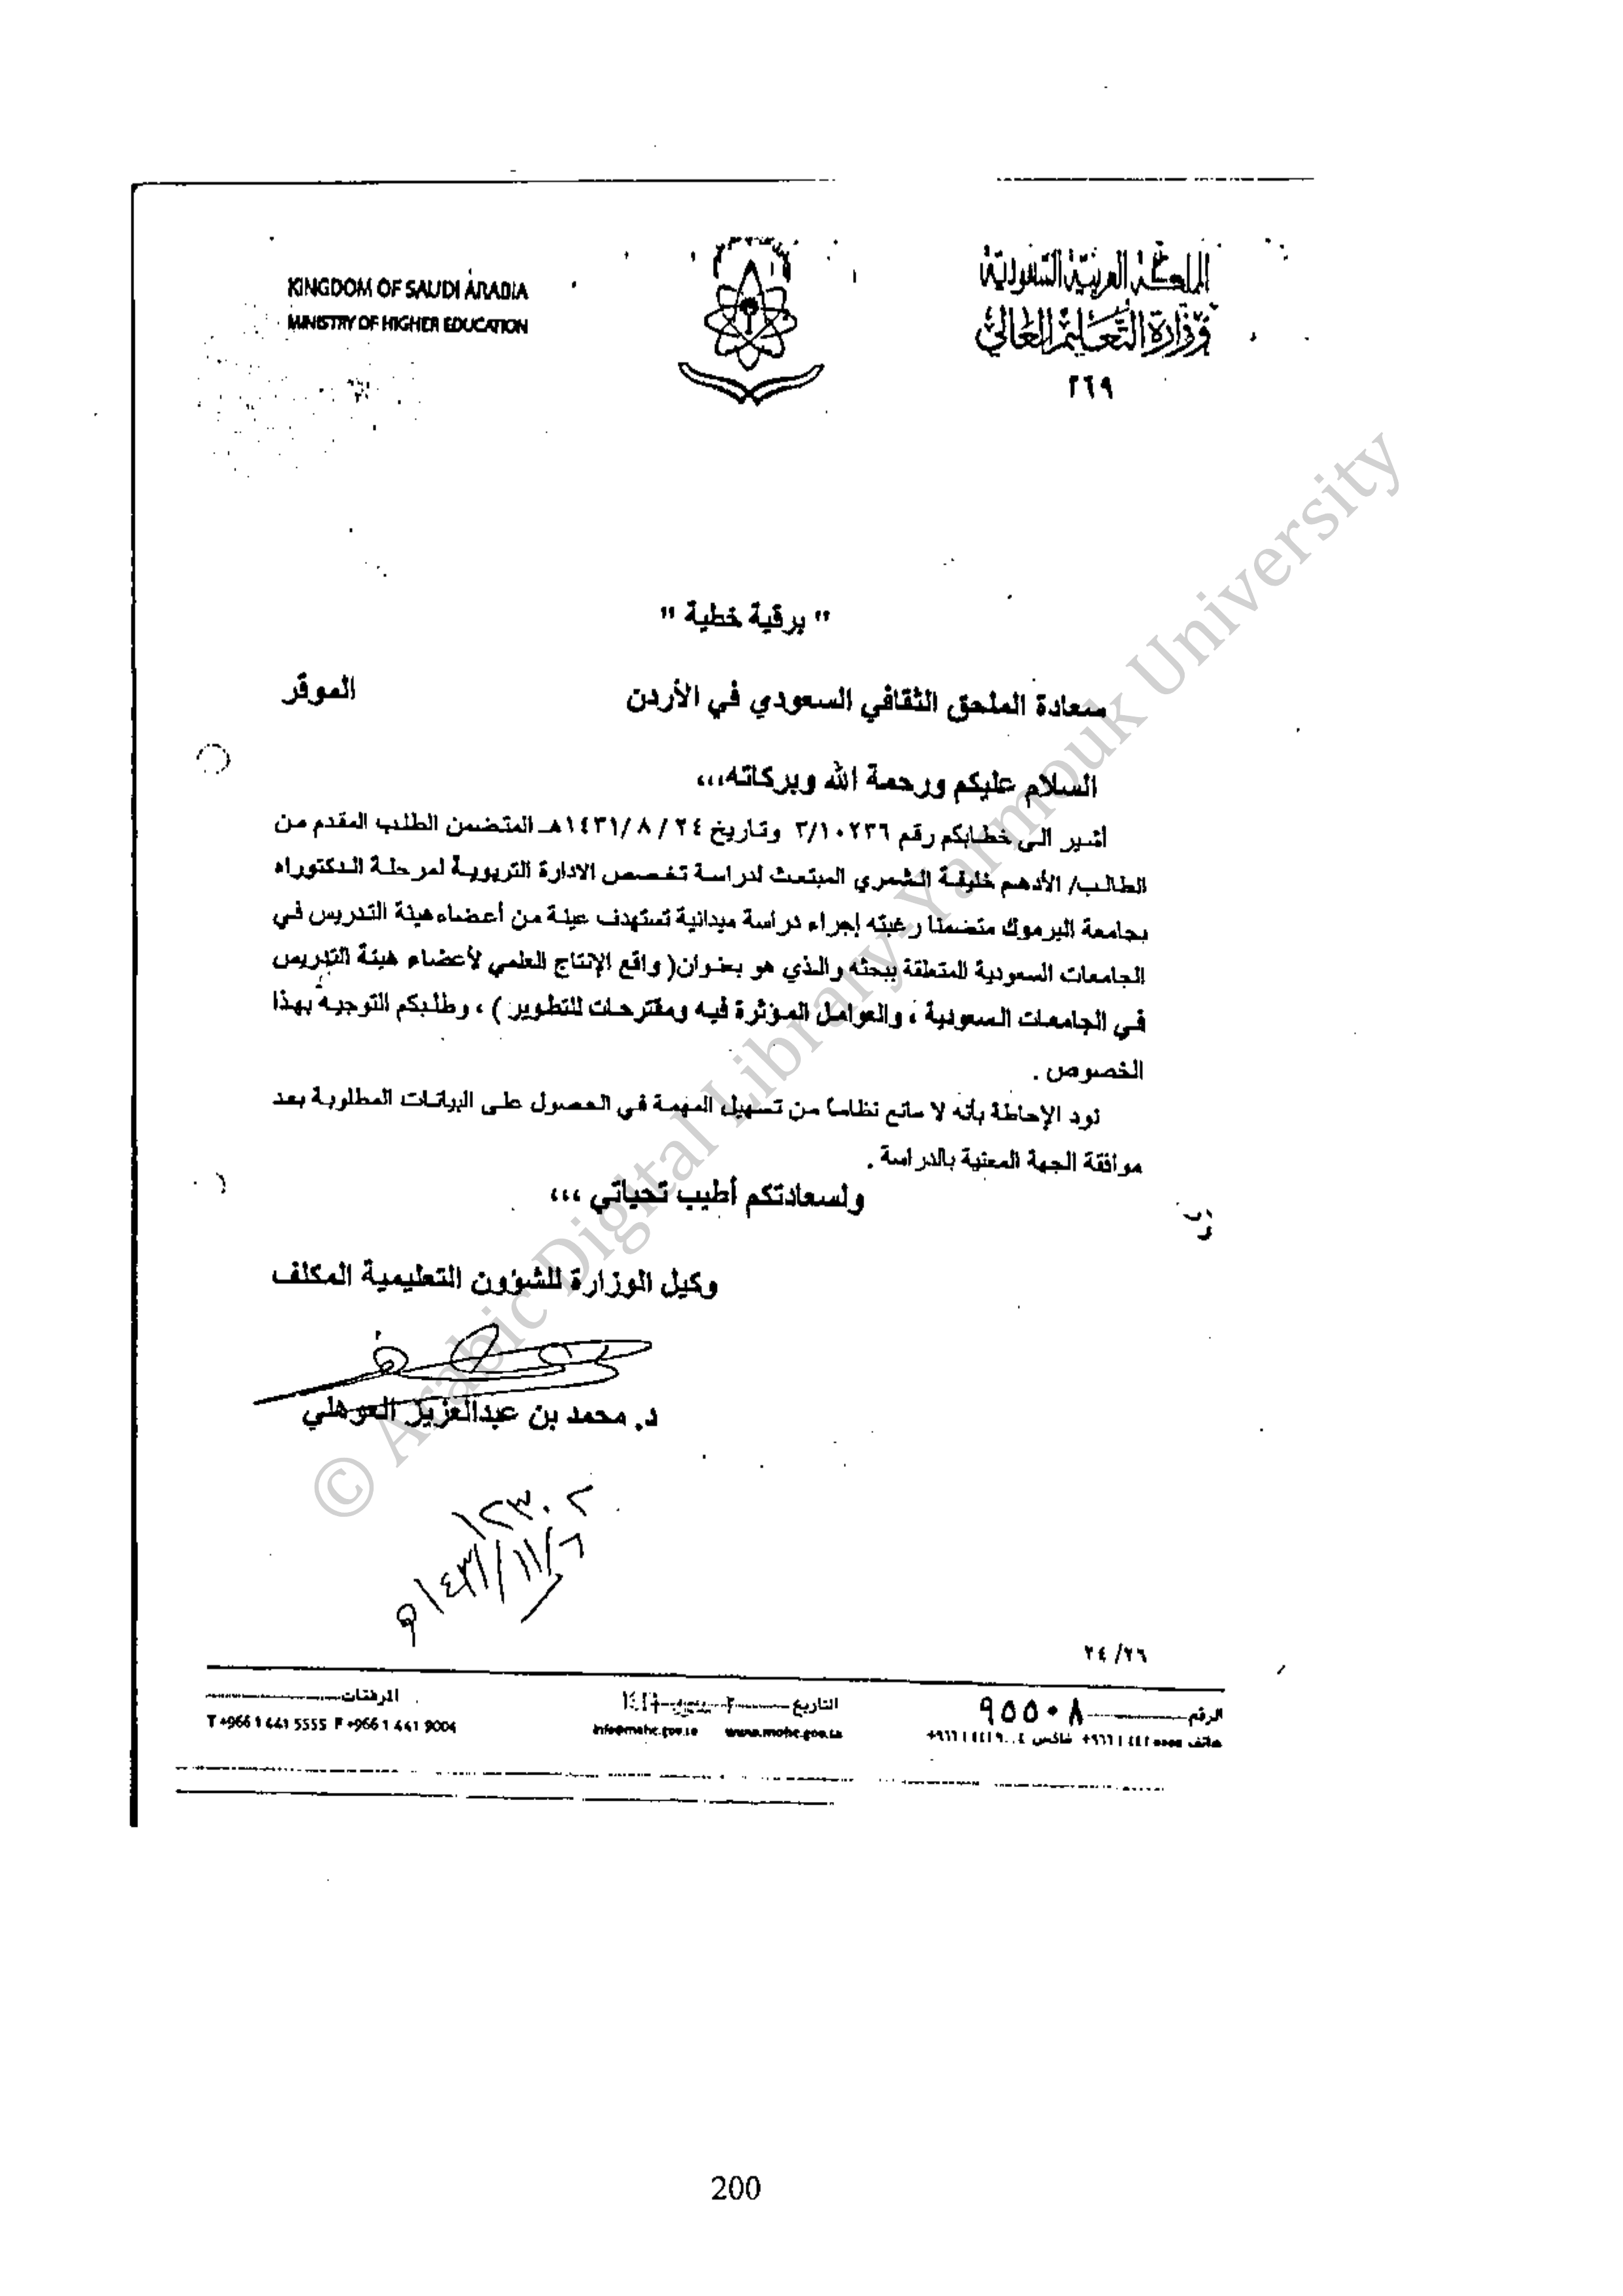 المملكة العربية السعودية
وزارة التعليم العالي
٢٦٩
KINGDOM OF SAUDI ARABIA
MINISTRY OF HIGHER EDUCATION
" برقية خطية "
سعادة الملحق الثقافي السعودي في الأردن الموقر
السلام عليكم ورحمة الله وبركاته،،،
أشير الى خطابكم رقم ٣/١٠٢٣٦ وتاريخ ٢٤ / ٨ /١٤٣١هـ المتضمن الطلب المقدم من
الطالب/ الأدهم خليفة الشمري المبتعث لدراسة تخصص الادارة التربوية لمرحلة الدكتوراه
بجامعة اليرموك متضمنا رغبته إجراء دراسة ميدانية تستهدف عينة من أعضاء هيئة التدريس في
الجامعات السعودية المتعلقة ببحثه والذي هو بعنوان( واقع الإنتاج العلمي لأعضاء هيئة التدريس
في الجامعات السعودية ، والعوامل المؤثرة فيه ومقترحات للتطوير ) ، وطلبكم التوجيه بهذا
الخصوص .
نود الإحاطة بأنه لا مانع نظاماً من تسهيل المهمة في الحصول على البيانات المطلوبة بعد
موافقة الجهة المعنية بالدراسة .
ولسعادتكم أطيب تحياتي ،،،
وكيل الوزارة للشؤون التعليمية المكلف
د. محمد بن عبدالعزيز العوهلي
١٤٣١/١١/٦هـ
٢٤/٢٦
الرقم ٩٥٥٠٨ التاريخ المرفقات
هاتف ٤٤١٥٥٥٥ ١ ٩٦٦+ فاكس ٤٤١٩٠٠٤ ١ ٩٦٦+ www.mohe.gov.sa info@mohe.gov.sa T +966 1 441 5555 F +966 1 441 9004
© Arabic Digital Library-Yarmouk University
200